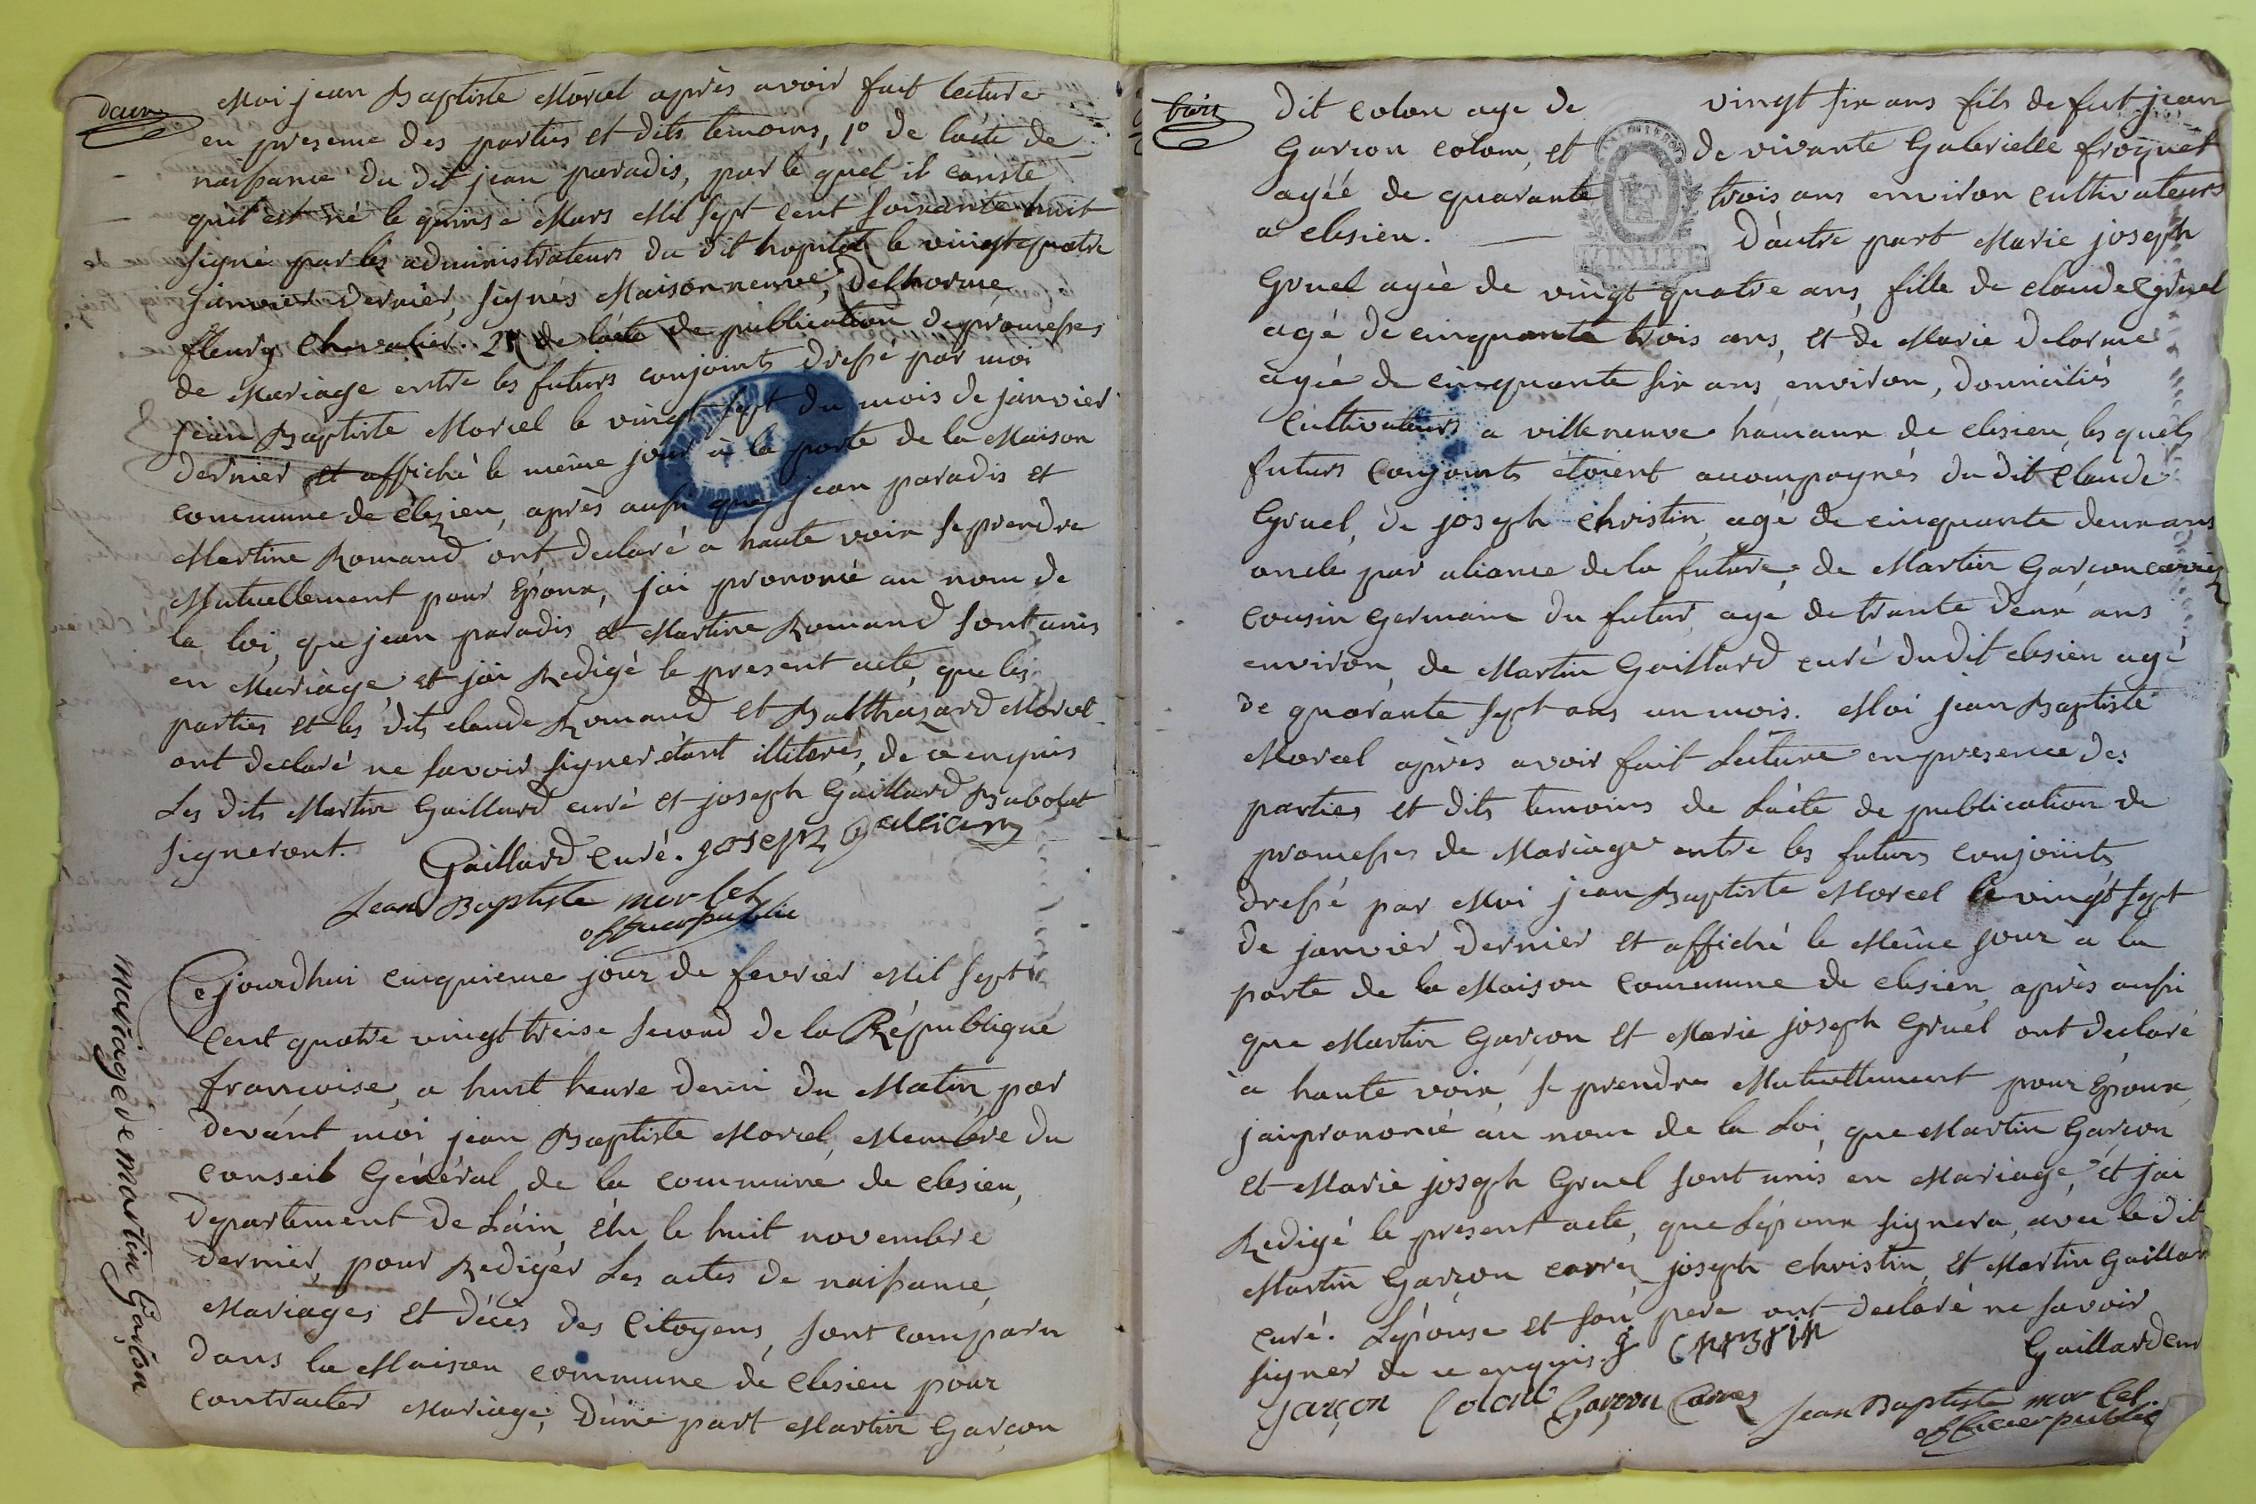 deux
Moi jean Baptiste Morcel après avoir fait lecture
en presence des parties et dits temoins, 1º de lacte de
naissance du dit jean paradis, par le quel il conste
quil est né le quinse Mars Mil sept cent soixante huit
signé par les administrateurs du dit hopital le vingt quatre
janvier dernier, signés Maisonneuve, Delhorme,
fleury Chevalier. 2º de lacte de publication de promesses
de Mariage entre les futurs conjoints dressé par moi
jean Baptiste Morcel le vingt sept du mois de janvier
dernier et affiché le même jour à la porte de la Maison
commune de Clezieu, après aussi que jean paradis et
Martine Romand ont declaré a haute voix se prendre
Mutuellement pour Epoux, jai prononcé au nom de
la loi, que jean paradis et Martine Romand sont unis
en Mariage et jai Redigé le present acte, que les
parties et les dits claude Romand et Balthazard Morcel
ont declaré ne savoir signer étant illiterés, de ce enquis
Les dits Martin Gaillard curé et joseph Gaillard Babolat
signeront. Gaillard Curé. joseph galliard
Jean Baptiste morcel
officier public
mariage de martin Garçon
Cejourdhui cinquieme jour de fevrier Mil sept
Cent quatre vingt treise second de la République
francoise, a huit heure demi du Matin, par
devant moi jean Baptiste Morcel, Membre du
conseil Général de la commune de clesieu,
departement de Láin, élu le huit novembre
dernier, pour Rediger Les actes de naissance,
Mariages et décès des Citoyens, sont comparu
dans la Maison commune de Clesieu pour
contracter Mariage, Dúne part Martin Garçon
trois
dit colon age de vingt six ans fils de fut jean
Garcon colom, et de vivante Gabrielle froquet
agéé de quarante trois ans environ cultivateurs
a clesieu. D'autre part Marie joseph
MINUTE
Gruel agée de vingt quatre ans, fille de claude Gruel
agé de cinquante trois ans, et de Marie Delorme
agée de cinquante six ans environ, domiciliés
Cultivateurs a villeneuve hamaux de clesieu, les quels
futurs Conjoints étoient accompagnés du dit Claude
Gruel, de joseph christin, agé de cinquante deux ans
oncle par aliance de la future, de Martin Garçon carrez
cousin germain du futur, age de trante deux ans
environ, de Martin Gaillard curé du dit clesieu agé
de quarante sept ans un mois. Moi jean Baptiste
Morcel après avoir fait Lecture en presence des
parties et dits temoins de Lacte de publication de
promesses de Mariage entre les futurs conjoints
dressé par Moi jean Baptiste Morcel le vingt sept
de janvier dernier et affiché le Même jour a la
porte de la Maison Commune de clesieu, après aussi
que Martin Garçon et Marie joseph Gruel ont declaré
a haute voix, se prendre Mutuellement pour Epoux,
jai prononcé au nom de la Loi, que Martin Garçon
et Marie joseph Gruel sont unis en Mariage, et jai
Redigé le present acte, que Lépoux signera, avec le dit
Martin Garçon carrez, joseph christin, et Martin Gaillar
curé. Lépouse et son pere ont declaré ne savoir
signer de ce enquis. j crystin
Gaillard cur
garçon Colon Garçon Carrez Jean Baptiste morcel
officier public